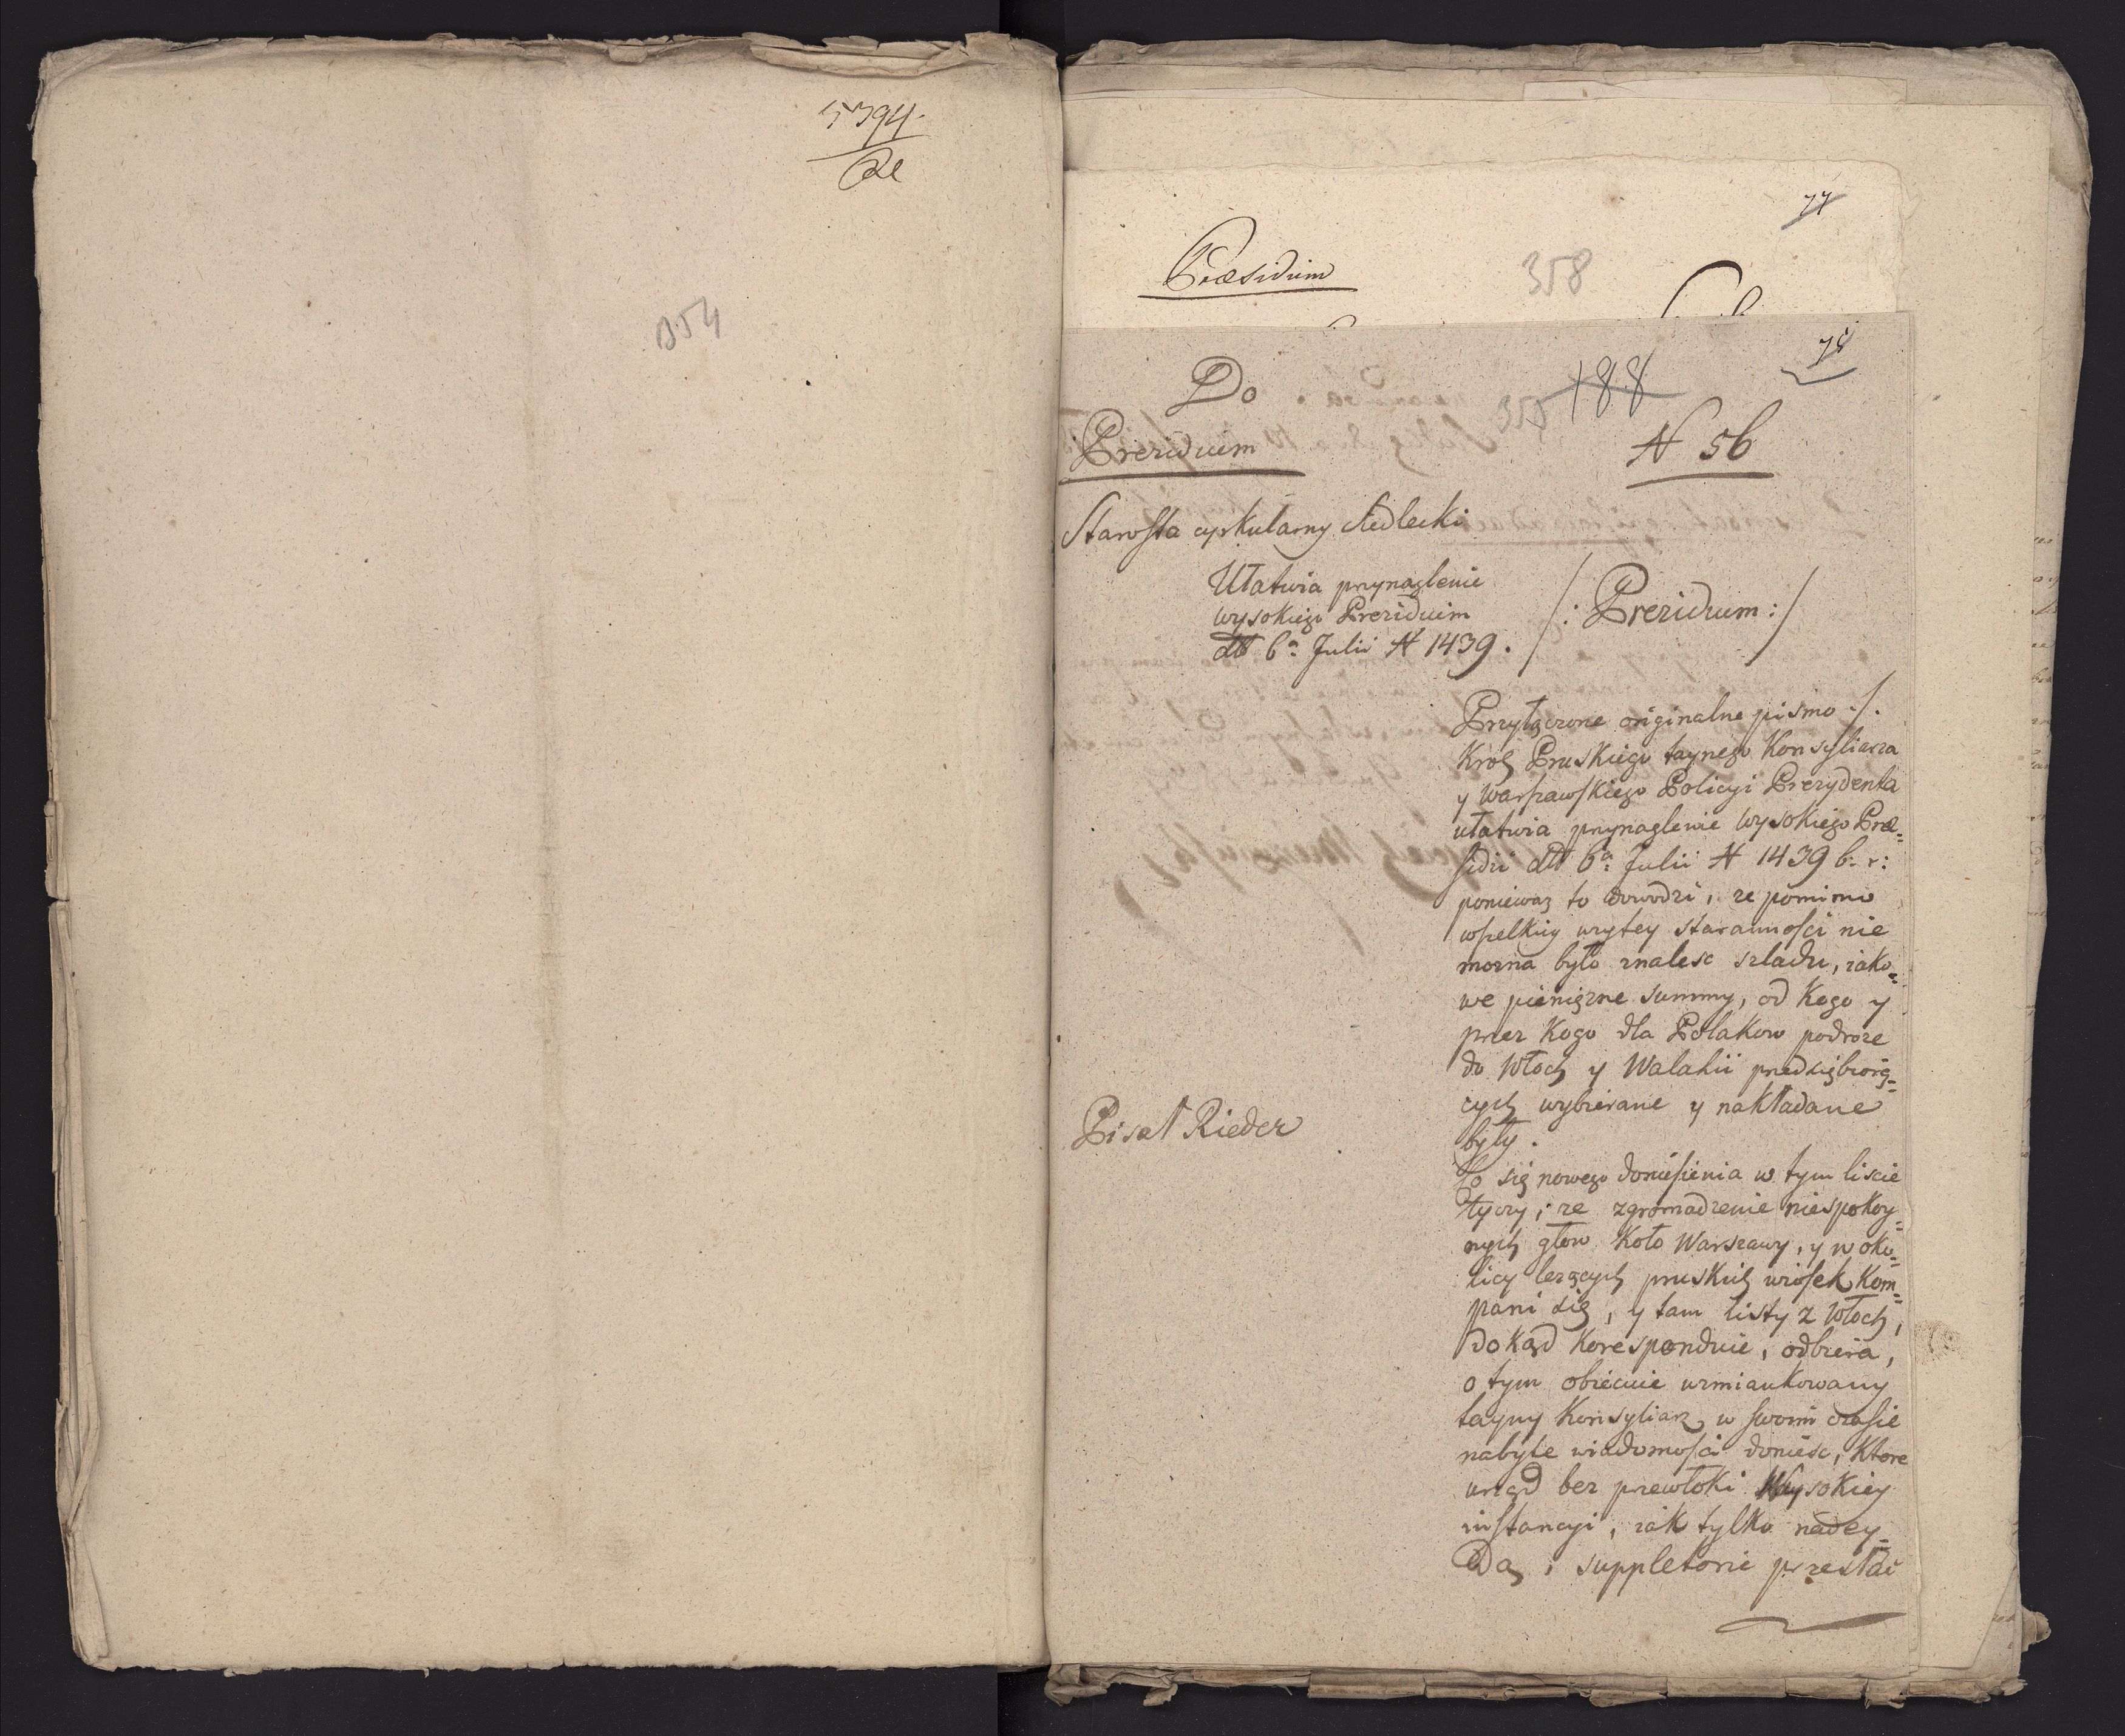 5394
354
77
Præsidium
358
78
Do
188
355
Prezidium
N 56
Starosta cyrkularny Siedlecki
Ułatwia przynaglenie
wysokiego Prezidium
dtt 6ª Julii N 1439.
/: Prezidium :/
Przyłączone originalne pismo ./.
Krolʒ Pruskiego taynego Konsyliarza
y Warszawskiego Policyi Prezydenta
ułatwia przynaglenie Wysokiego Præ-
sidii dtt 6ª Julii N 1439 b: r:
poniewaz to dowodzi, ze pomimo
wszelkiey uzytey starannosci nie
mozna było znalesc szladu, iako-
we pienięzne summy, od kogo y
przez kogo dla Polakow podroze
do Włoch y Walahii przedsiębiorą-
cych wybierane y nakładane
były.
Pisał Rieder
Co się nowego doniesienia w tym liscie
tyczy; ze zgromadzenie niespokoy-
nych głow koło Warszawy, y w oko-
licy lezących pruskich wiosek kom-
pani się, y tam listy z Włoch,
dokąd koresponduie, odbiera,
o tym obiecuie wzmiankowany
tayny Konsyliarz, w swoim czasie
nabyte wiadomosci doniesc, ktore
urząd bez przewłoki Wysokiey
instancyi, iak tylko nadey-
dą, suppletorie przesłac